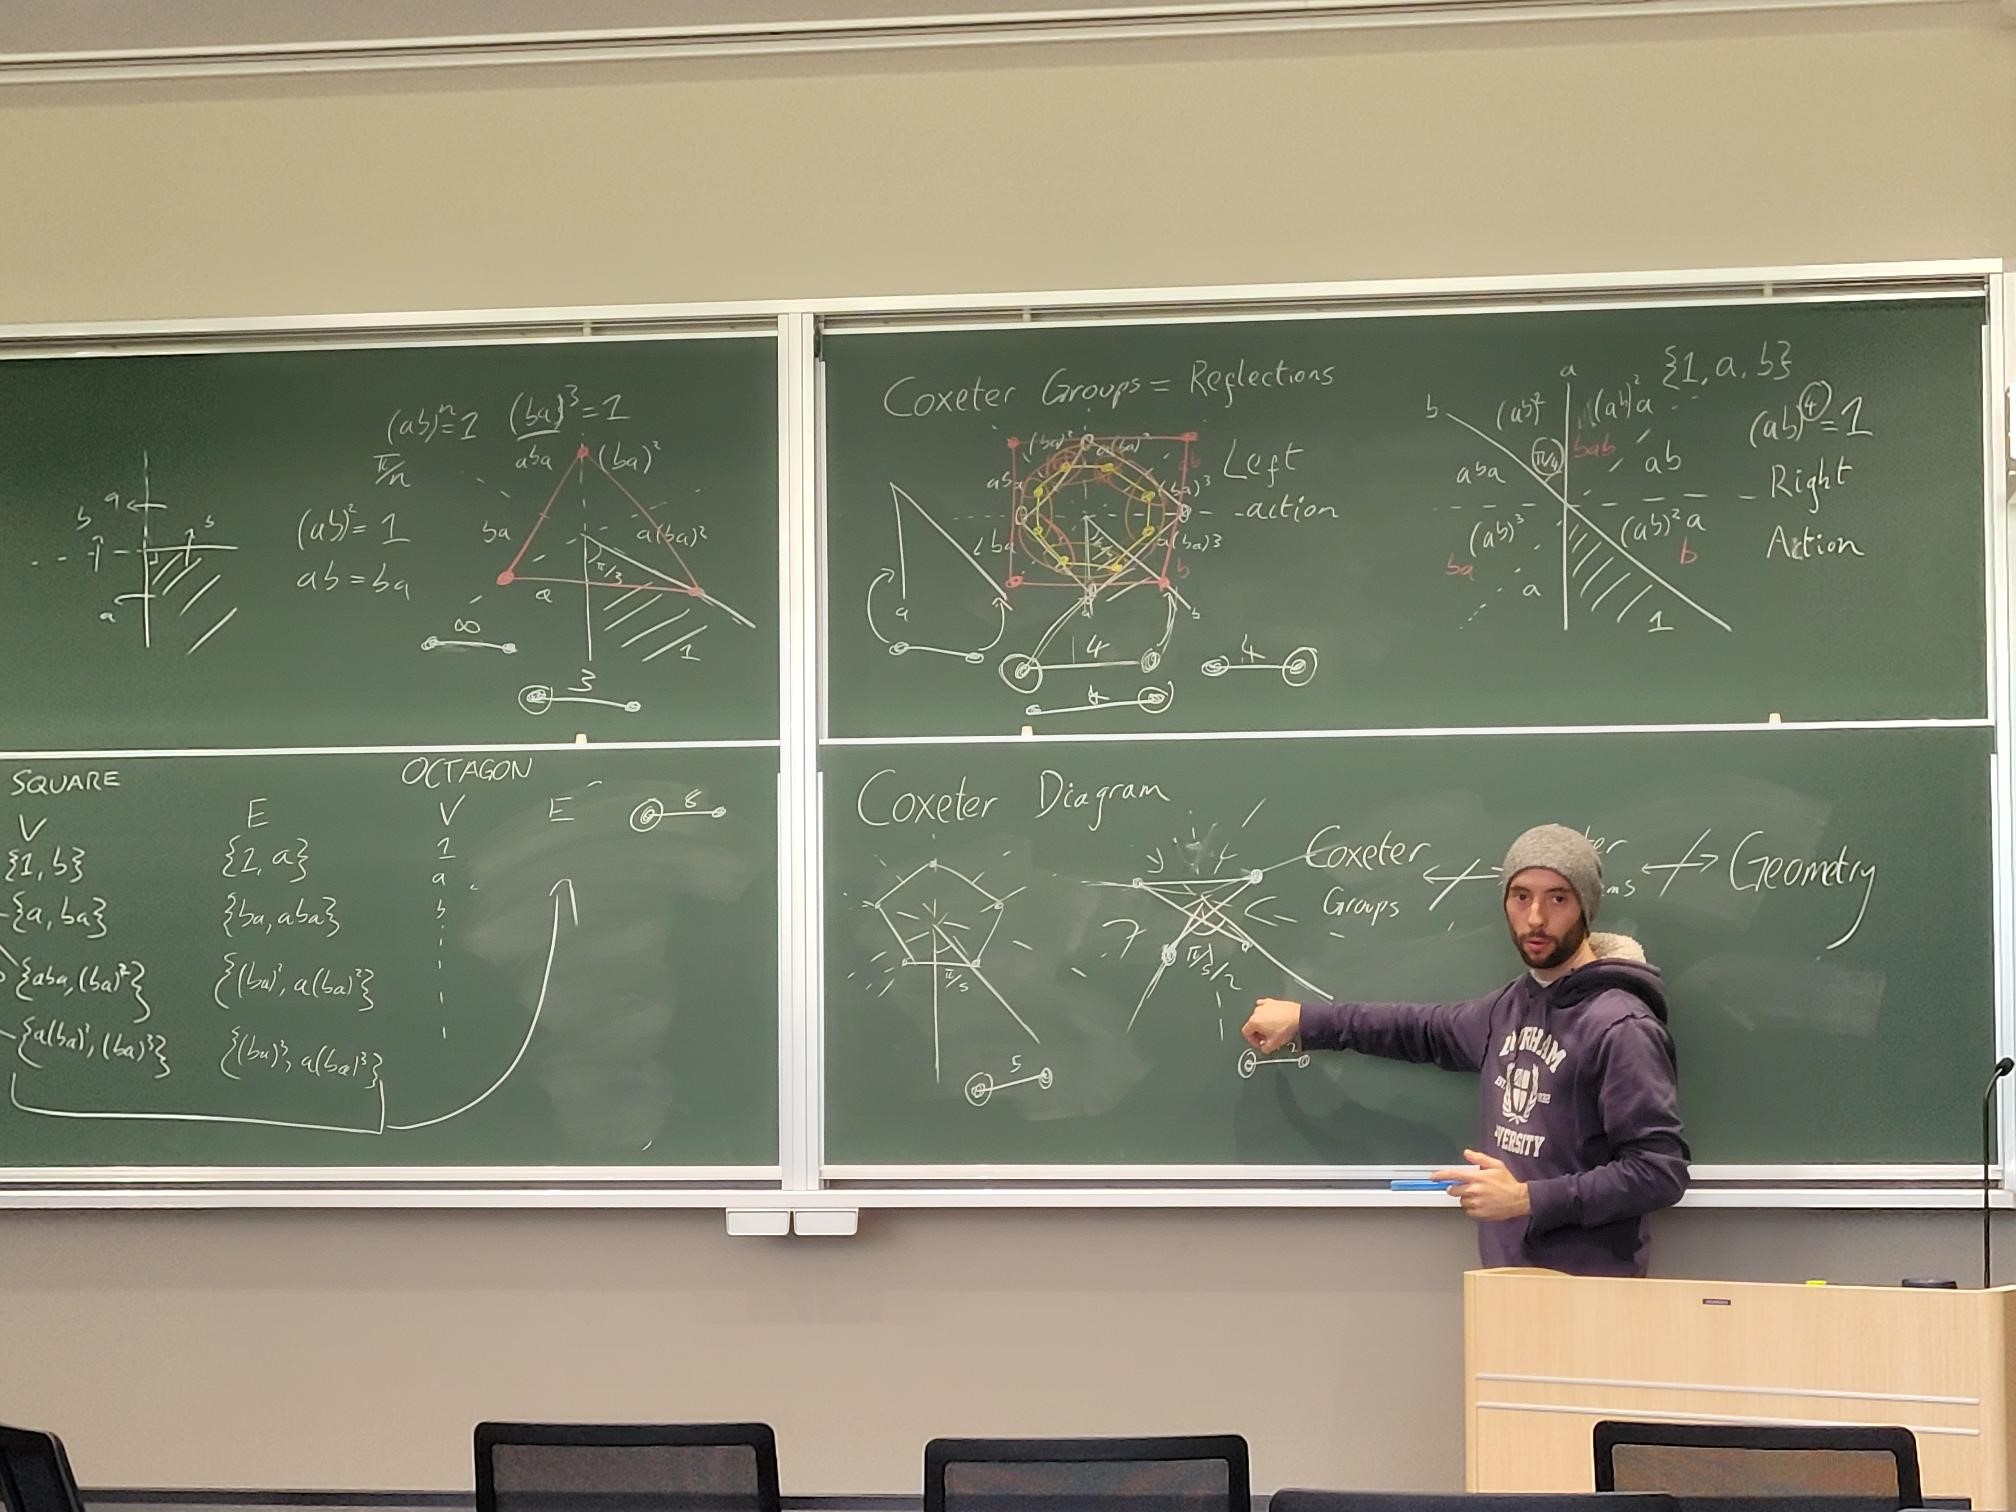 (ab)ⁿ=1
(ba)³=1
π/n
aba
(ba)²
a
b
b
a
(ab)²=1
ab=ba
ba
a(ba)²
π/3
a
1
∞
3
Coxeter Groups = Reflections
Left
action
(ba)²
a(ba)²
ab
aba
(ba)³
ba
a(ba)³
b
a
a
b
4
4
4
a
{1, a, b}
b
(ab)²
(ab)²a
(ab)⁴=1
bab
π/4
aba
ab
Right
Action
(ab)³
(ab)²a
ba
b
a
1
SQUARE
OCTAGON
V
E
V
E
8
{1, b}
{1, a}
1
a
{a, ba}
{ba, aba}
b
{aba, (ba)²}
{(ba)², a(ba)²}
{a(ba)², (ba)³}
{(ba)³, a(ba)³}
Coxeter Diagram
Coxeter
Groups
Geometry
π/5
π/5/2
5